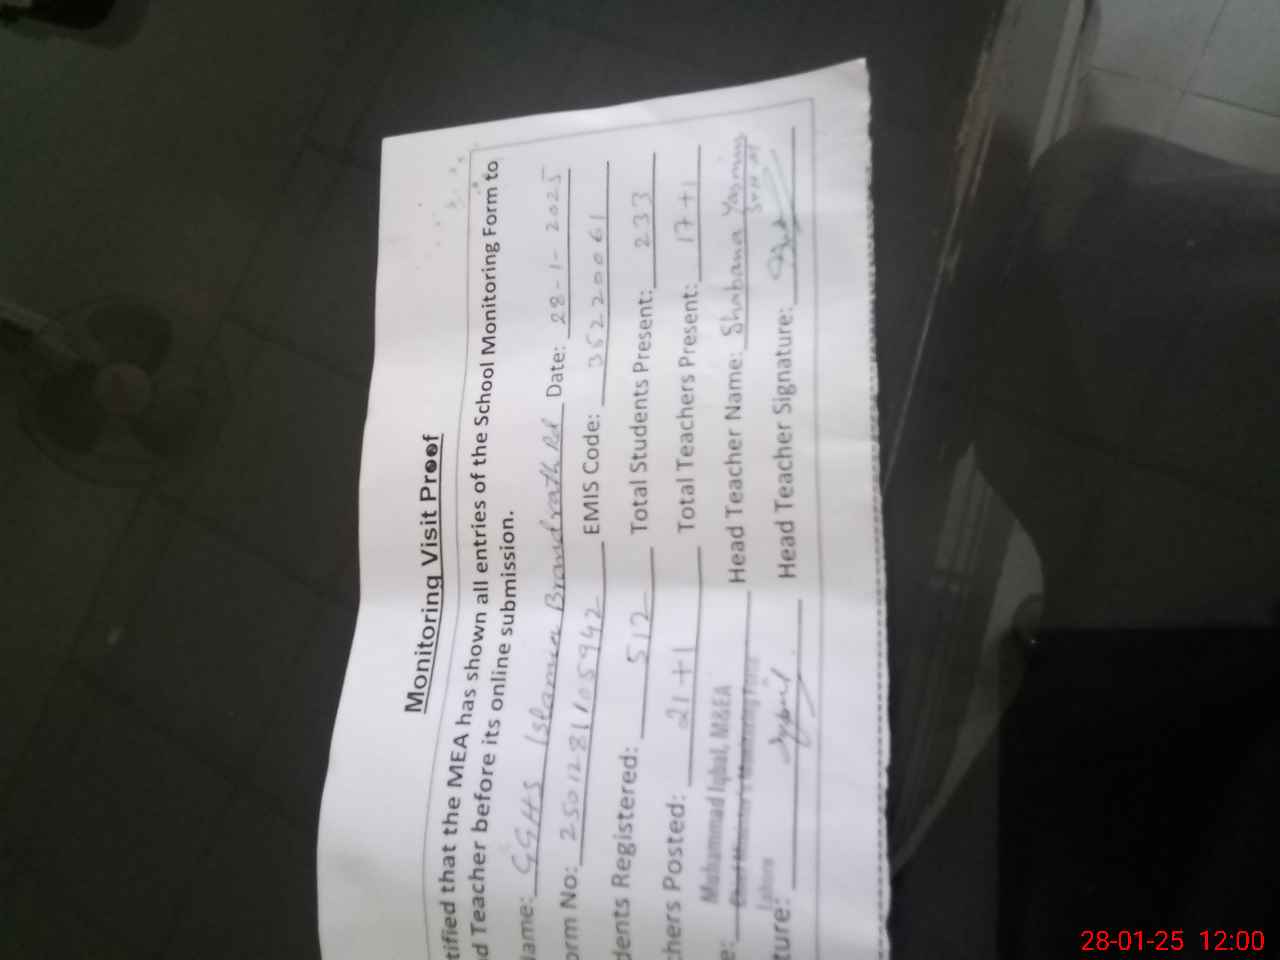 Monitoring Visit Proof
tified that the MEA has shown all entries of the School Monitoring Form to
d Teacher before its online submission.
lame: GGHS Islamia Brandrath Rd Date: 28-1-2025
orm No: 2501281105942 EMIS Code: 35220061
dents Registered: 512 Total Students Present: 233
chers Posted: 21+1 Total Teachers Present: 17+1
e: Muhammad Iqbal, M&EA Head Teacher Name: Shabana Yasmin
Chief Minister's Monitoring Force
Lahore
ture: Head Teacher Signature:
28-01-25 12:00